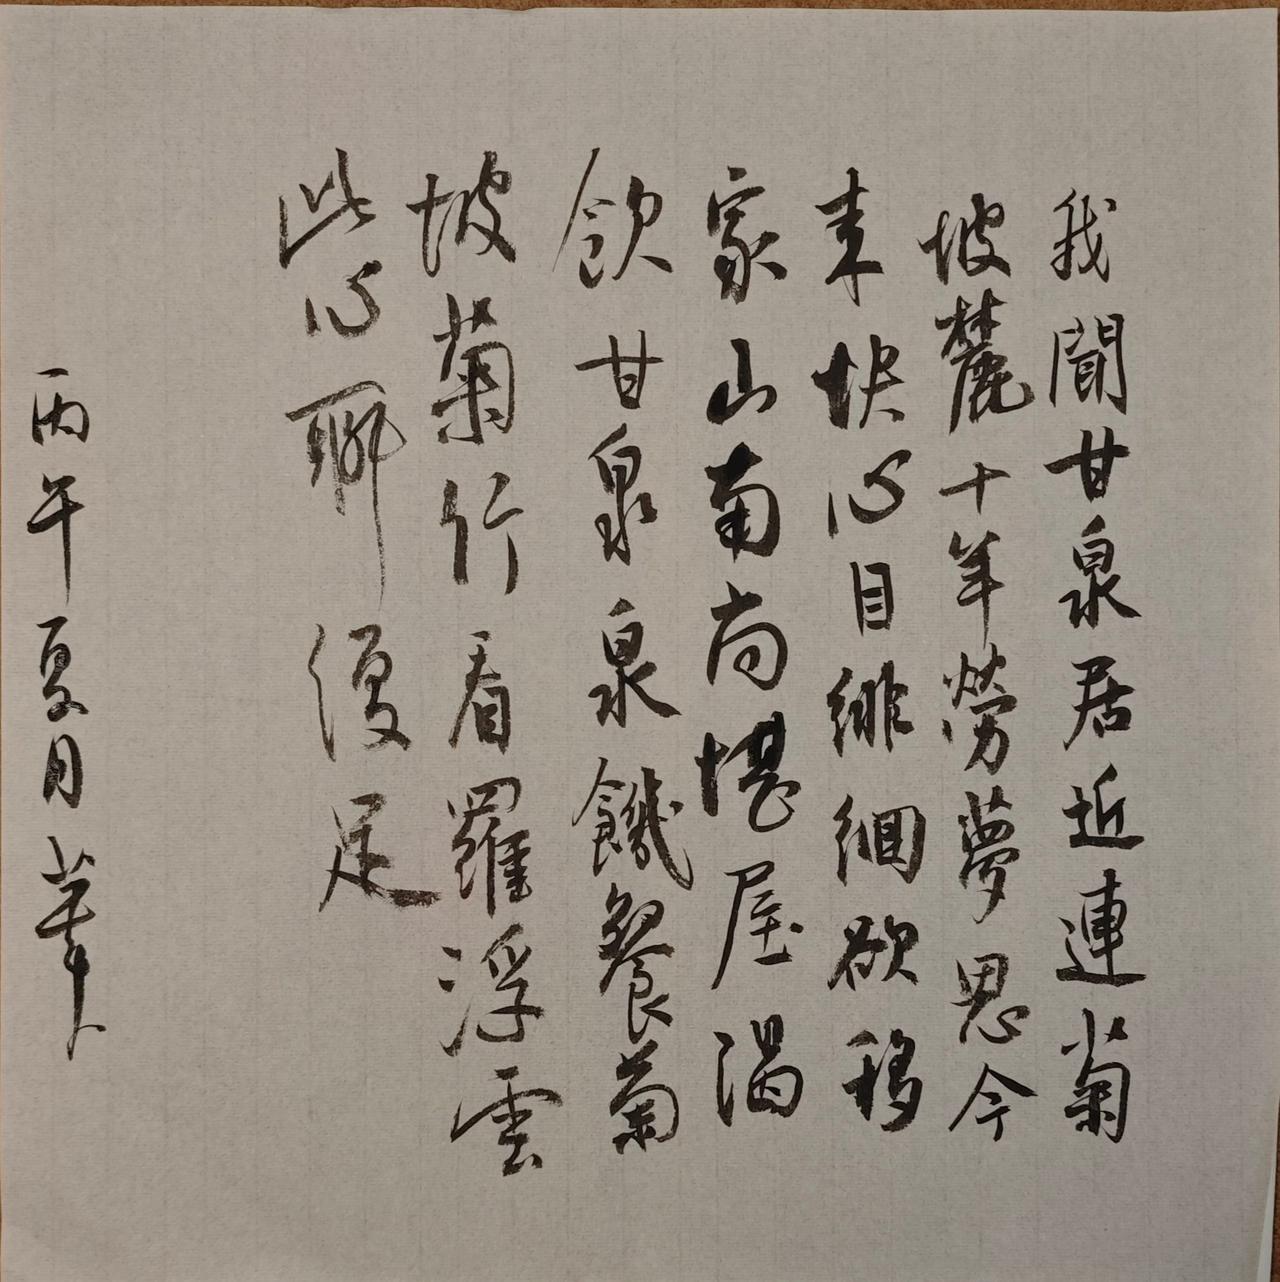 我聞甘泉居近連菊
坡麓十年勞夢思今
来快心目徘徊欲移
家山南尚堪屋渴
飲甘泉泉饑餐菊
坡菊行看羅浮雲
此心聊復足
丙午夏月華